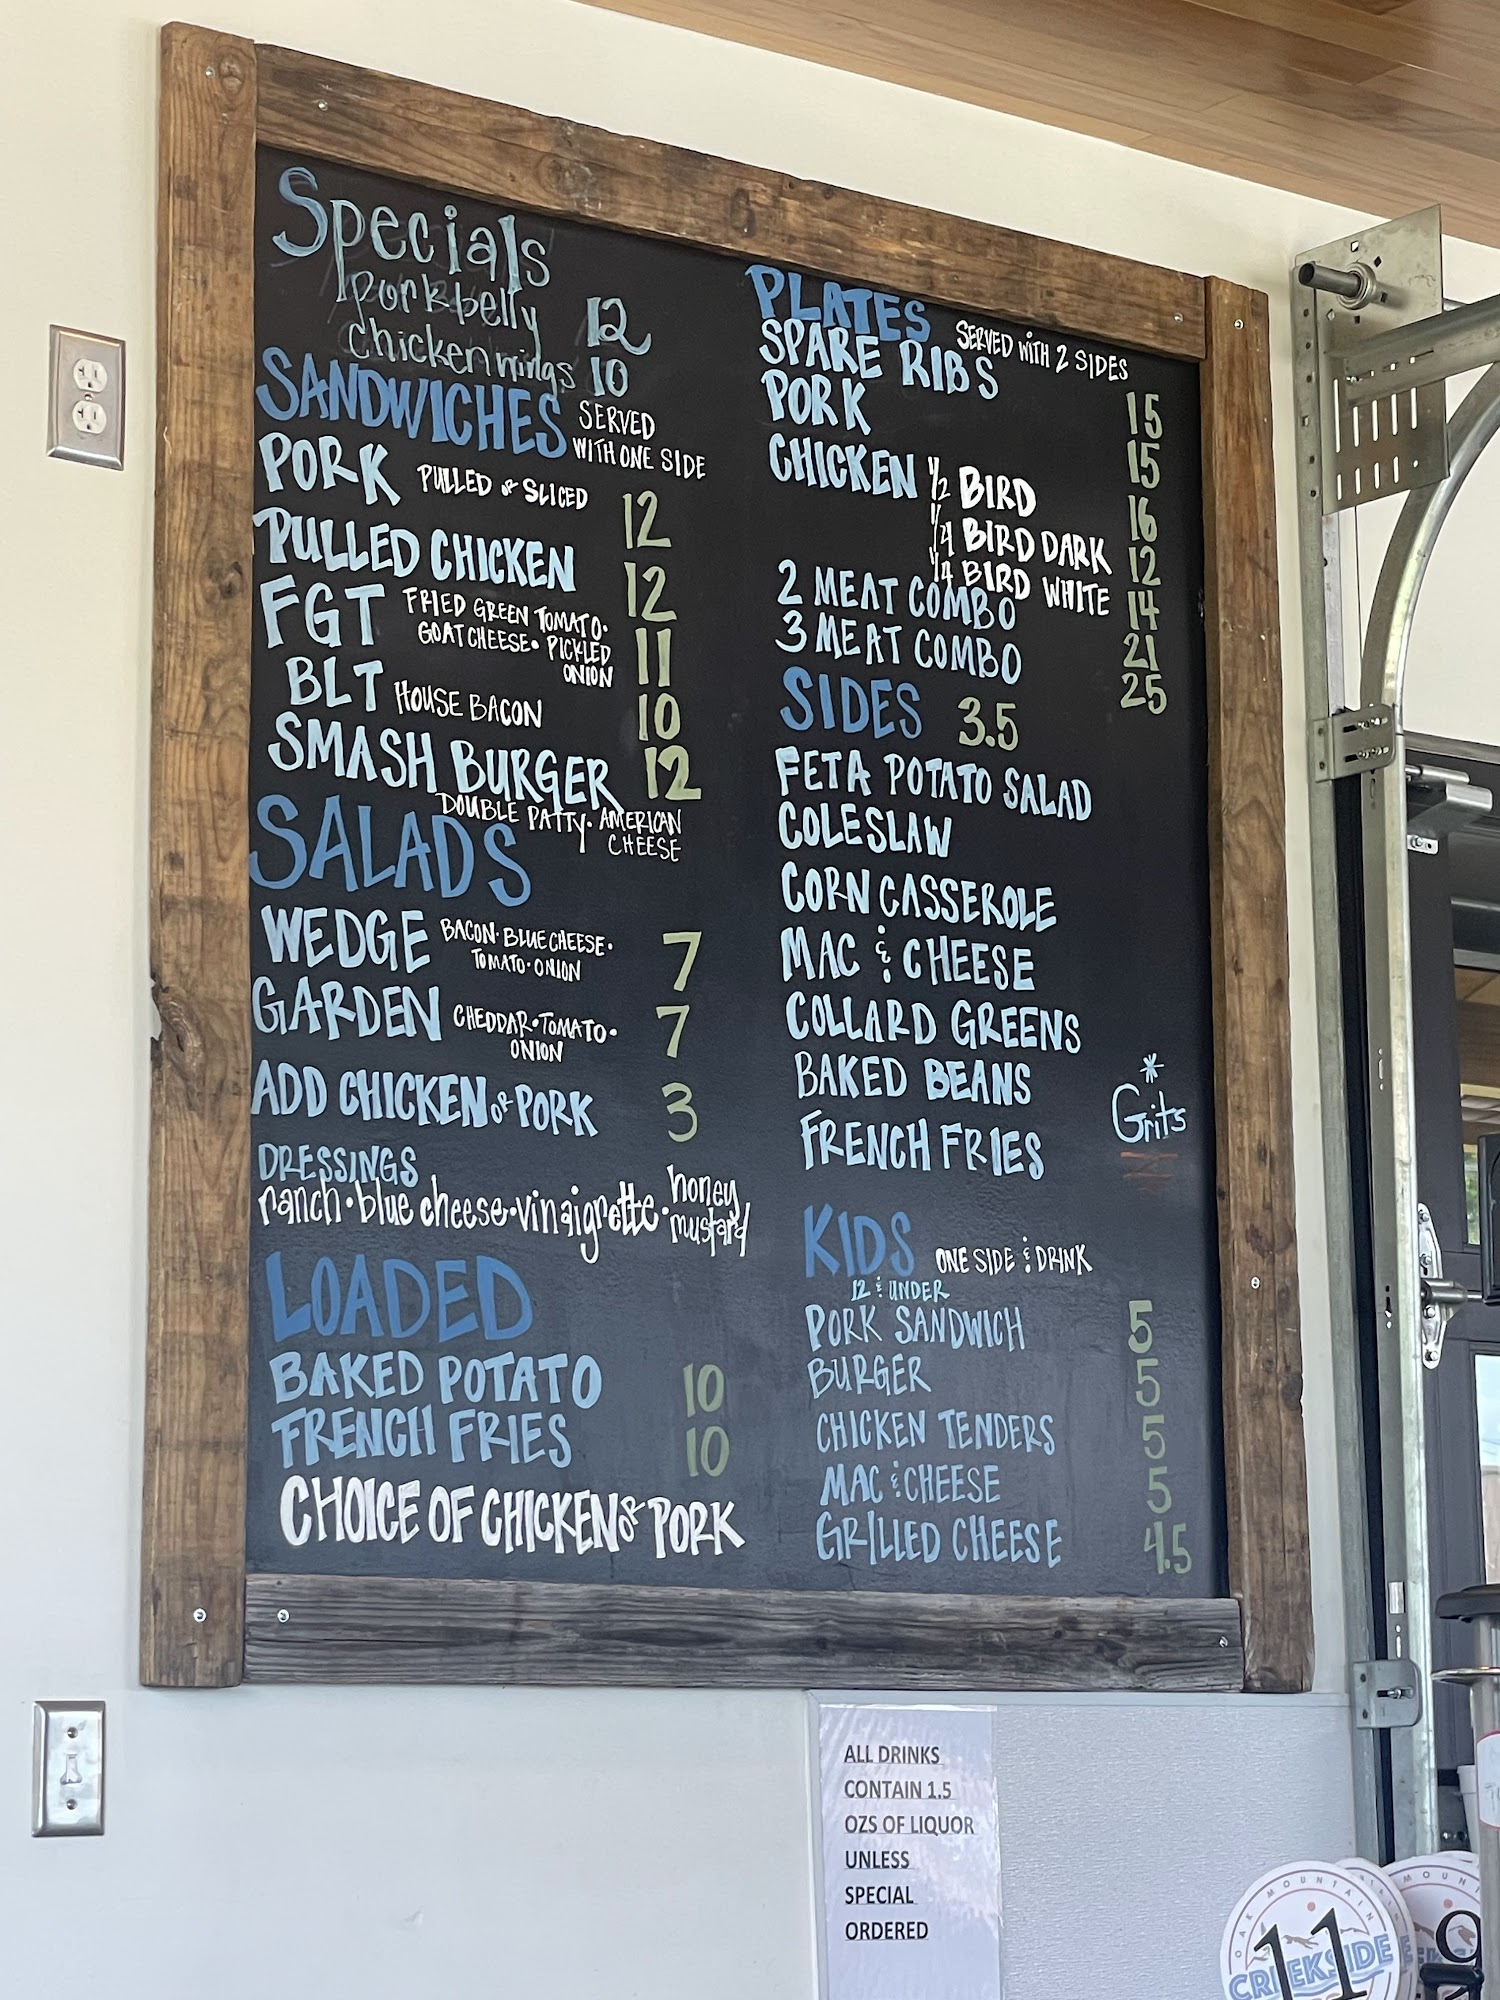 Specials
porkbelly 12
chicken wings 10
SANDWICHES SERVED
WITH ONE SIDE
PORK PULLED or SLICED 12
PULLED CHICKEN 12
FGT FRIED GREEN TOMATO· 11
GOAT CHEESE· PICKLED
ONION
BLT HOUSE BACON 10
SMASH BURGER 12
DOUBLE PATTY· AMERICAN
CHEESE
SALADS
WEDGE BACON· BLUE CHEESE· 7
TOMATO·ONION
GARDEN CHEDDAR·TOMATO· 7
ONION
ADD CHICKEN or PORK 3
DRESSINGS
ranch·blue cheese·vinaigrette·honey
mustard
LOADED
BAKED POTATO 10
FRENCH FRIES 10
CHOICE OF CHICKEN or PORK
PLATES SERVED WITH 2 SIDES
SPARE RIBS 15
PORK 15
CHICKEN 1/2 BIRD 16
1/4 BIRD DARK 12
1/4 BIRD WHITE 14
2 MEAT COMBO 21
3 MEAT COMBO 25
SIDES 3.5
FETA POTATO SALAD
COLESLAW
CORN CASSEROLE
MAC & CHEESE
COLLARD GREENS
BAKED BEANS
FRENCH FRIES
*
Grits
KIDS ONE SIDE & DRINK
12 & UNDER
PORK SANDWICH 5
BURGER 5
CHICKEN TENDERS 5
MAC & CHEESE 5
GRILLED CHEESE 4.5
ALL DRINKS
CONTAIN 1.5
OZS OF LIQUOR
UNLESS
SPECIAL
ORDERED
OAK MOUNTAIN
CREEKSIDE
11
9